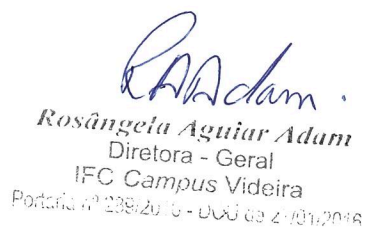 RAAdam.
Rosângela Aguiar Adam
Diretora - Geral
IFC Campus Videira
Portaria nº 289/2016 - DOU de /01/2016